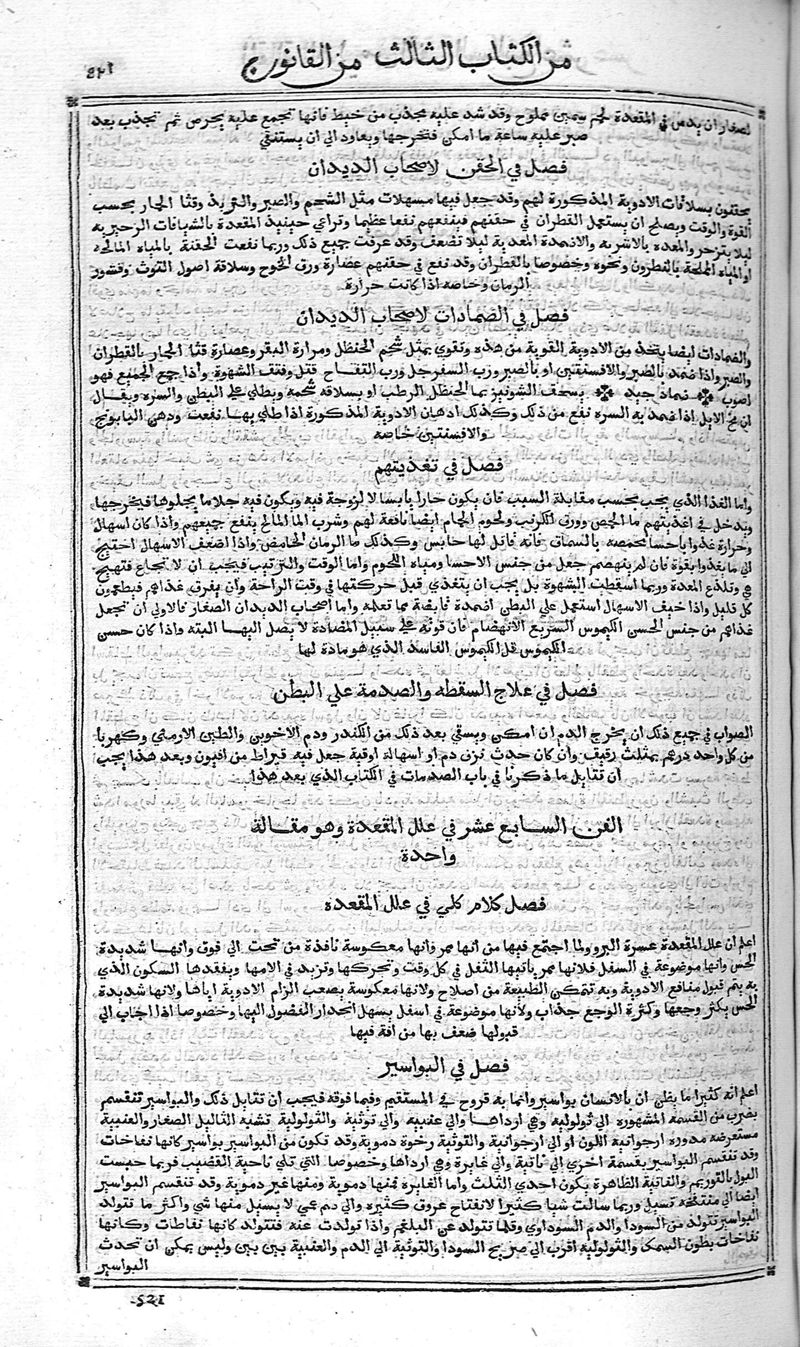 من الكتاب الثالث من القانون
لصغار ان يدس في المقعدة لحم سمين مملوح وقد شد عليه مجذب من خيط فانها تجتمع عليه بحرص ثم تجذب بعد
صبر عليه ساعة ما امكن فتخرجها ويعاود الي ان يستنقي
فصل في الحقن لاصحاب الديدان
يحقنون بسلاقات الادوية المذكورة لهم وقد جعل فيها مسهلات مثل الشحم والصبر والتربد وقثا الحمار بحسب
القوة والوقت ويصلح ان يستعمل القطران في حقنهم فينفعهم نفعا عظيما وتراعي حينيذ المقعدة بالشيافات الزحيريه
ليلا يتزحر والمعده بالاشربه والاضمدة المعدية ليلا تضعف وقد عرفت جميع ذلك وربما نفعت الحقنة بالمياه المالحه
او المياه المملحة بالنطرون ونحوه وخصوصا بالقطران وقد نفع في حقنهم عصارة ورق الخوخ وسلاقة اصول التوث وقشور
الرمان وخاصه اذا كانت حرارة
فصل في الضمادات لاصحاب الديدان
والضمادات ايضا يتخذ من الادوية القوية من هذه وتقوي بمثل شحم الحنظل ومرارة البقر وعصارة قثا الحمار بالقطران
والصبر واذا ضمد بالصبر والافسنتين او بالصبر ورب السفرجل ورب التفاح قتل وفتق الشهوة واذا جمع الجميع فهو
اصوب ضماد جيد يسحق الشونيز بما الحنظل الرطب او بسلاقه شحمه ويطلي علي البطن والسره ويقال
ان مخ الايل اذا ضمد به السره نفع من ذلك وكذلك ادهان الادوية المذكورة اذا طلي بها نفعت ودهن البابونج
والافسنتين خاصه
فصل في تغذيتهم
واما الغذا الذي يجب بحسب مقابلة السبب فان يكون حارا يابسا لا لزوجة فيه ويكون فيه جلا ما يجلوها فيخرجها
ويدخل في اغذيتهم ما الحمص وورق الكرنب ولحوم الحمام ايضا نافعة لهم وشرب الما المالح ينفع جميعهم واذا كان اسهال
وحرارة غذوا باحسا محمصه بالسماق فانه قاتل لها حابس وكذلك ما الرمان الحامض واذا اضعف الاسهال احتيج
الي ما يغذوا بقوة فان لم ينهضم جعل من جنس الاحسا ومياه اللحوم واما الوقت والترتيب فيجب ان لا تجاع فتهيج
هي وتلذع المعدة وربما اسقطت الشهوة بل يجب ان يتغذي قبل حركتها في وقت الراحة وان يفرق غذاهم فيطعمون
كل قليل واذا خيف الاسهال استعمل علي البطن اضمدة قابضة مما تعلمه واما اصحاب الديدان الصغار فالاولي ان تجعل
غذاهم من جنس الحسن الكيموس السريع الانهضام فان قوته علي سبيل المضادة لا يصل اليها البته واذا كان حسن
الكيموس قل الكيموس الفاسد الذي هو مادة لها
فصل في علاج السقطه والصدمة علي البطن
الصواب في جميع ذلك ان يخرج الدم ان امكن ويسقي بعد ذلك من الكندر ودم الاخوين والطين الارمني وكهربا
من كل واحد درهم بمثلث رقيف وان كان حدث نزف دم او اسهالة اوقية جعل فيه قيراط من افيون وبعد هذا يجب
ان تقابل ما ذكرنا في باب الصدمات في الكتاب الذي بعد هذا
الفن السابع عشر في علل المقعدة وهو مقالة
واحدة
فصل كلام كلي في علل المقعدة
اعلم ان علل المقعدة عسرة البرو ولما اجتمع فيها من انها ممر وانها معكوسة نافذة من تحت الي فوق وانها شديدة
الحس وانها موضوعة في السفل فلانها ممر ياتيها الثفل في كل وقت وتحركها وتزيد في الامها ويفقدها السكون الذي
به يتم قبول منافع الادوية وبه تتمكن الطبيعة من اصلاح ولانها معكوسة يصعب الزام الادوية اياها ولانها شديدة
الحس يكثر وجعها وكثرة الوجع جذاب ولانها موضوعة في اسفل يسهل انحدار الفضول اليها وخصوصا اذا اجاب الي
قبولها ضعف بها من افة فيها
فصل في البواسير
اعلم انه كثيرا ما يظن ان بالانسان بواسير وانما به قروح في المستقيم وفيما فوقه فيجب ان تتامل ذلك والبواسير تنقسم
بضرب من القسمه المشهوره الي ثولولية وهي ارداها والي عنبيه والي توثية والثولولية تشبه الثاليل الصغار والعنبية
مستعرضه مدوره ارجوانية اللون او الي ارجوانية والتوثية رخوة دموية وقد تكون من البواسير بواسير كانها نفاخات
وقد تنقسم البواسير بقسمة اخري الي ناتية والي غايرة وهي ارداها وخصوصا التي تلي ناحية القضيب فربما حبست
البول بالتوريم والناتية الظاهرة يكون احدي الثلث واما الغايرة فمنها دموية ومنها غير دموية وقد تنقسم البواسير
ايضا الي منتفخه تسيل وربما سالت شيا كثيرا لانفتاح عروق كثيره والي صم عمي لا يسيل منها شي واكثر ما تتولد
البواسير تتولد من السودا والدم السوداوي وقلما تتولد عن البلغم واذا تولدت عنه فتتولد كانها نفاطات وكانها
نفاخات بطون السمك والثولولية اقرب الي صريح السودا والتوثية الي الدم والعنبية بين بين وليس يمكن ان تحدث
البواسير
521